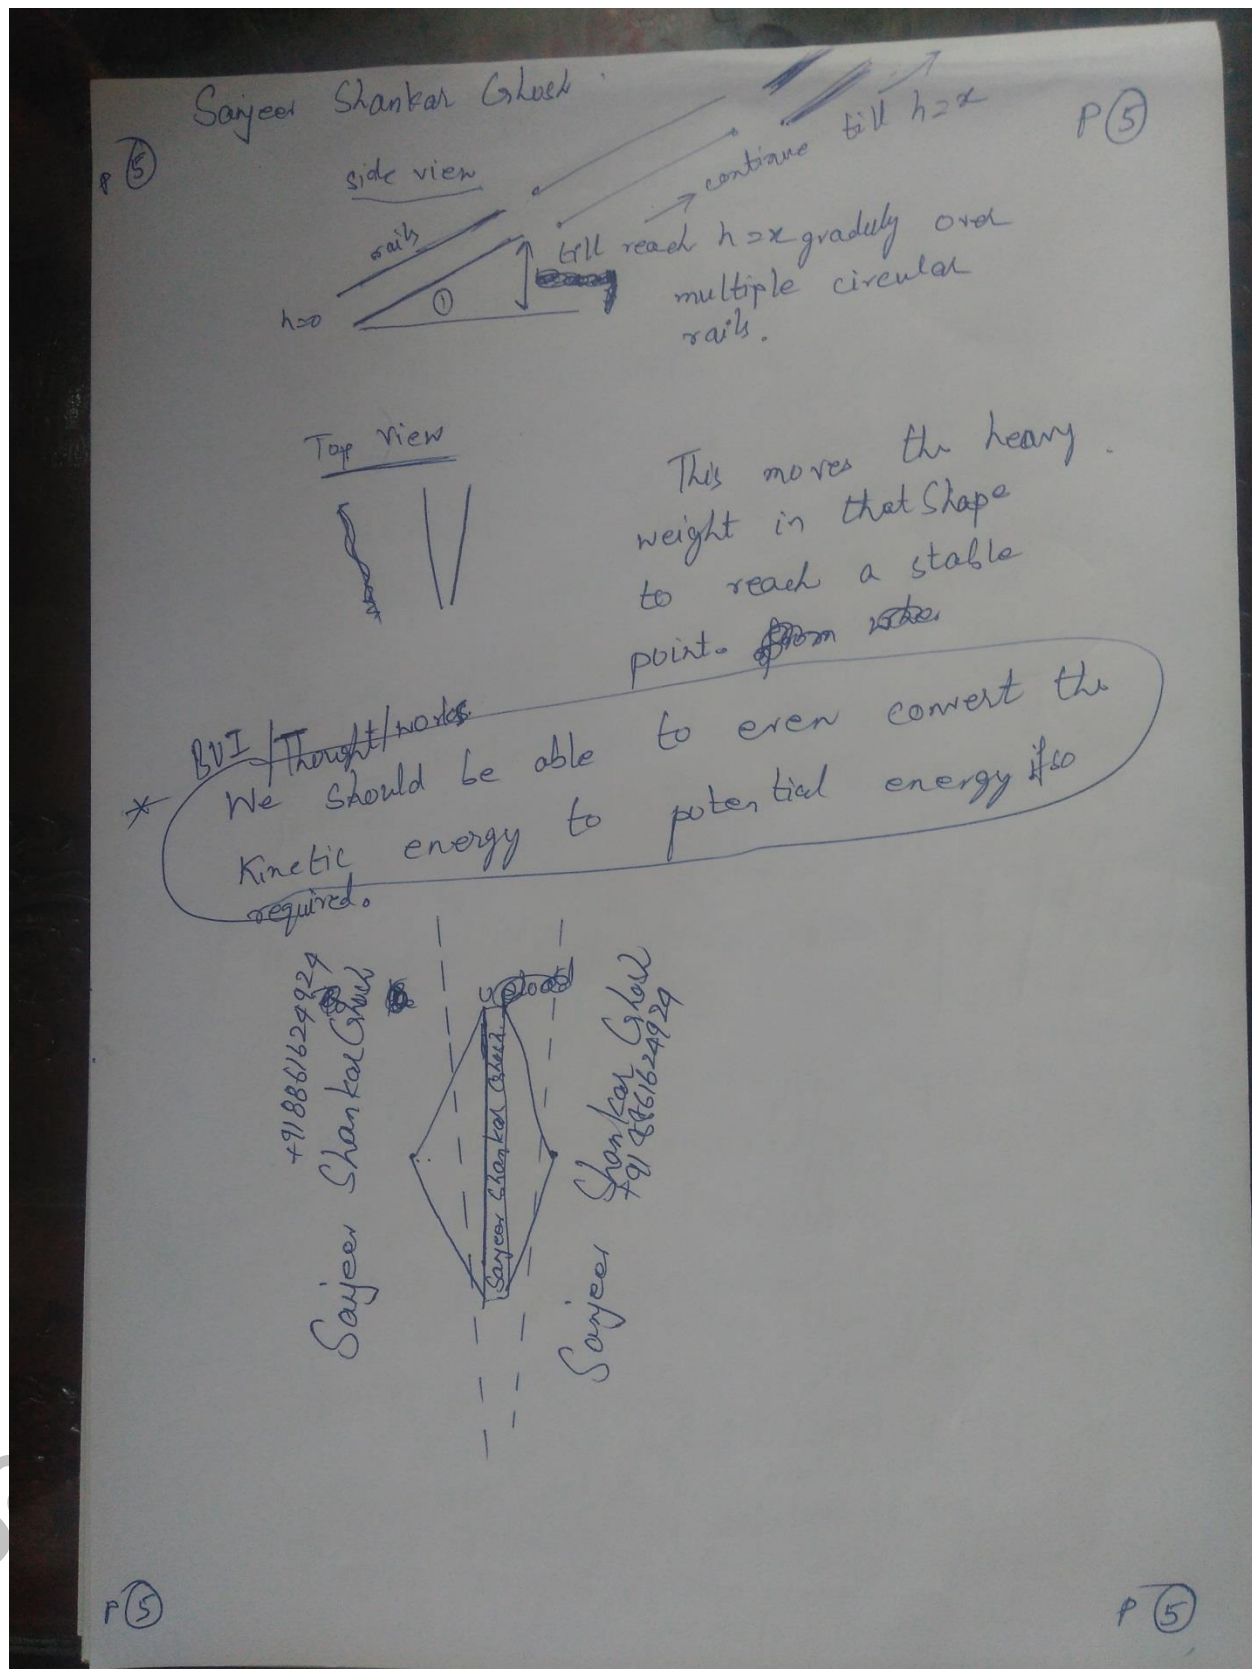 Sanjeev Shankar Ghosh
P 5
P 5
side view
rails
continue till h=x
h=0
1
till reach h=x gradully over
multiple circular
rails.
Top view
This moves the heavy
weight in that shape
to reach a stable
point. from
BUI / Thought/works.
* We should be able to even convert the
Kinetic energy to potential energy if so
required.
+918861624924
Sanjeev Shankar Ghosh
Sanjeev Shankar Ghosh
Sanjeev Shankar Ghosh
+918861624924
P 5
P 5